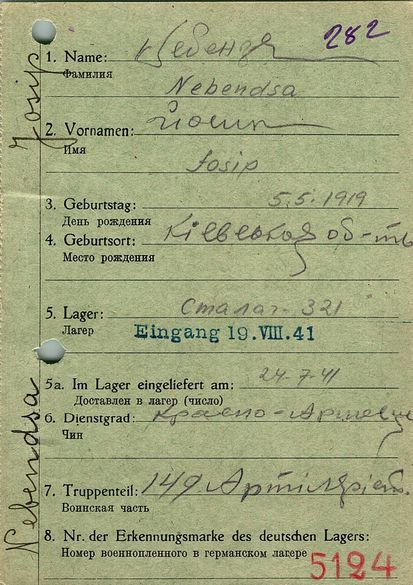 282
1. Name: Небендза
Фамилия
Nebendsa
2. Vornamen: Йосип
Имя
Josip
3. Geburtstag: 5.5.1919
День рождения
4. Geburtsort: Кіевская об-ть
Место рождения
5. Lager: Сталаг 321
Лагер
Eingang 19. VIII. 41
5a. Im Lager eingeliefert am: 24-7-41
Доставлен в лагер (число)
6. Dienstgrad: Красно-Армеец
Чин
7. Truppenteil: 149
Воинская часть
8. Nr. der Erkennungsmarke des deutschen Lagers:
Номер военнопленного в германском лагере
5124
Nebendsa Josip